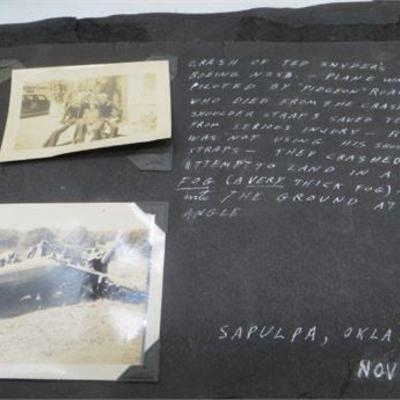 CRASH OF TED SNYDER'S
BOEING N2SB. – PLANE WA
PILOTED BY "PIDGEON" ROA
WHO DIED FROM THE CRASH
SHOULDER STRAPS SAVED TE
FROM SERIOUS INJURY – R
WAS NOT USING HIS SHOU
STRAPS – THEY CRASHED
ATTEMPT TO LAND IN A
FOG (A VERY THICK FOG)
INTO THE GROUND AT
ANGLE
SAPULPA, OKLA
NOV